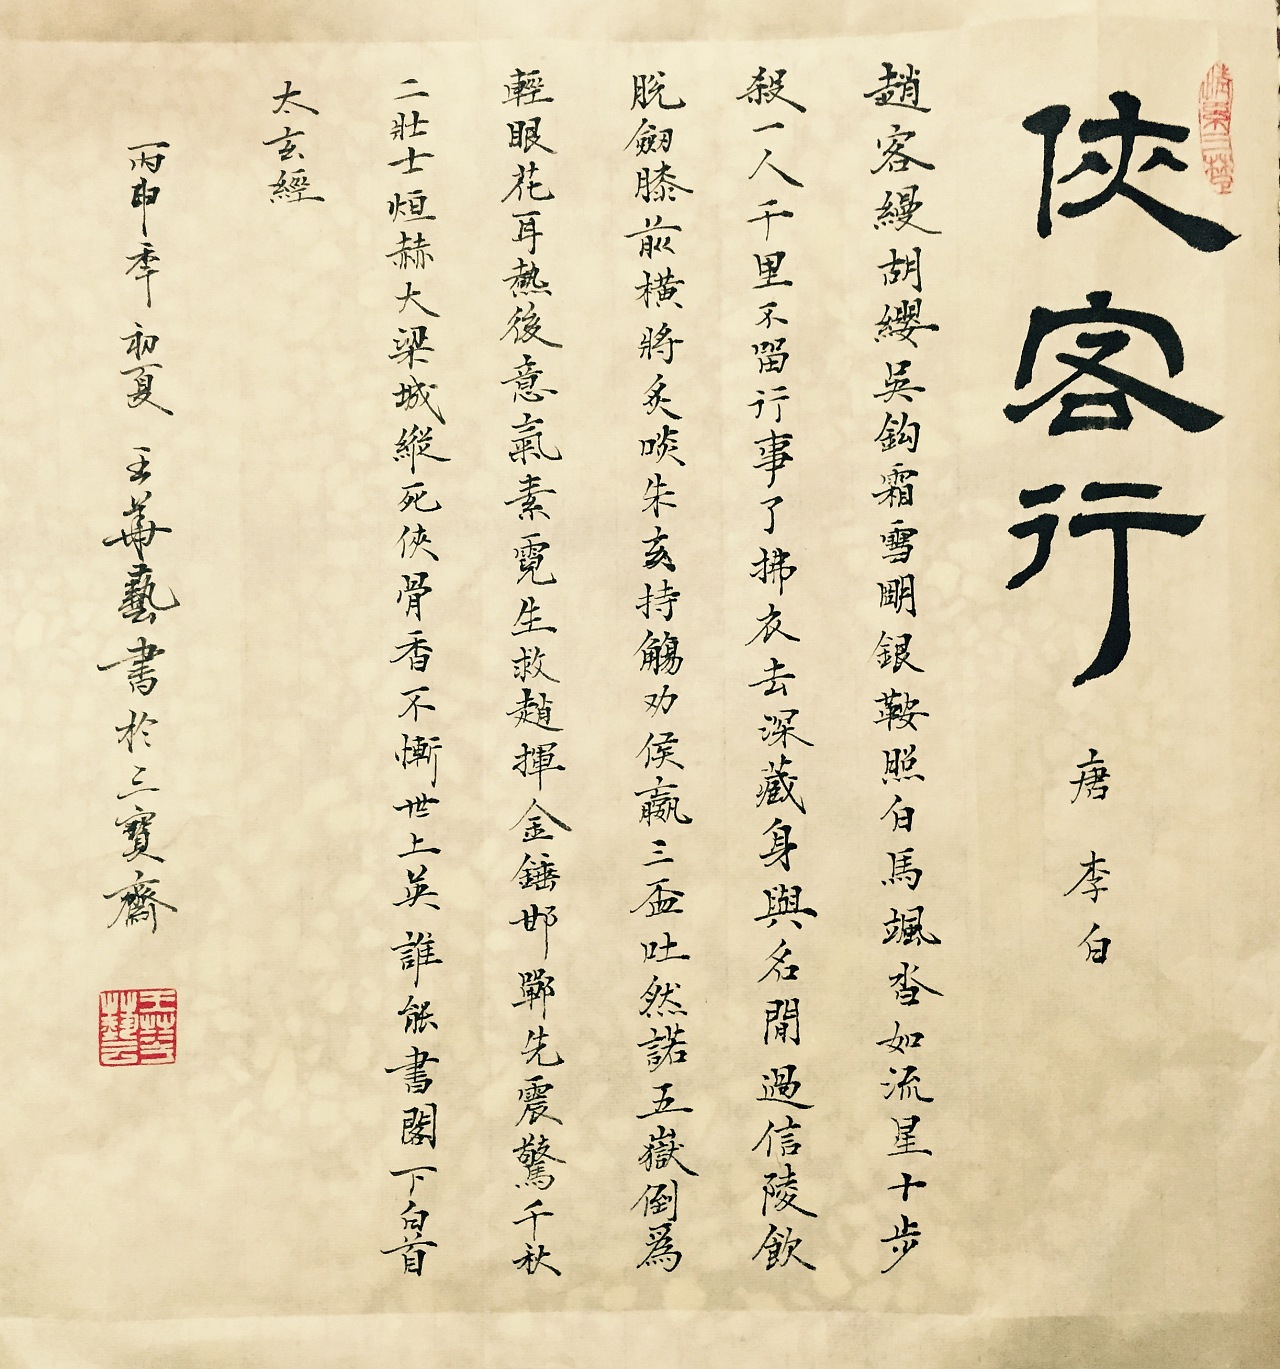 俠客行
唐 李白
趙客縵胡纓吳鈎霜雪明銀鞍照白馬颯沓如流星十步
殺一人千里不留行事了拂衣去深藏身與名閒過信陵飲
脫劒膝前橫將炙啖朱亥持觴劝侯嬴三盃吐然諾五嶽倒爲
輕眼花耳熱後意氣素霓生救趙揮金錘邯鄲先震驚千秋
二壯士烜赫大梁城縱死俠骨香不慚世上英誰能書閣下白首
太玄經
丙申年初夏王華藝書於三寶齋